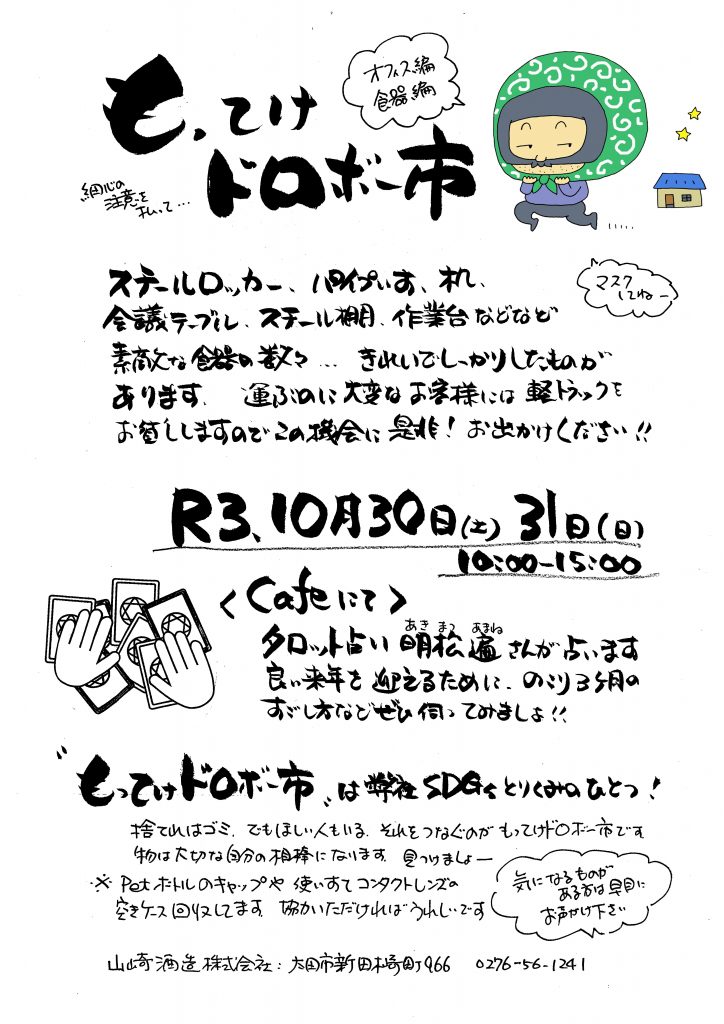 オフィス編
食器編
もってけ
ドロボー市
細心の
注意を
払って…
マスク
してねー
スチールロッカー、パイプいす、机、
会議テーブル、スチール棚、作業台などなど
素敵な食器の数々… きれいでしっかりしたものが
あります。運ぶのに大変なお客様には軽トラックを
お貸ししますのでこの機会に是非！お出かけください!!
R3、10月30日(土) 31日(日)
10:00-15:00
<Cafeにて>
あき まつ あまね
タロット占い 明松 遍さんが占います
良い来年を迎えるために、のこり3ヶ月の
すごし方などぜひ伺ってみましょ!!
"もってけドロボー市"は弊社SDGsとりくみのひとつ！
捨てればゴミ、でもほしい人もいる。それをつなぐのがもってけドロボー市です
物は大切な自分の相棒になります。見つけましょー
※Petボトルのキャップや使いすてコンタクトレンズの
空きケース回収してます。協力いただければうれしいです
気になるものが
ある方は早目に
お声かけ下さい
山崎酒造株式会社：太田市新田木崎町966 0276-56-1241